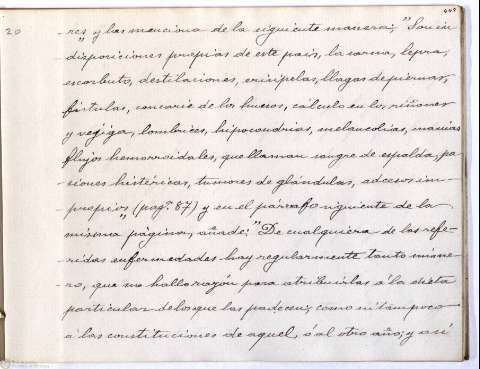 20
res" y las menciona de la siguiente manera; "Son in
disposiciones propias de este país, la sarna, lepra,
escorbuto, destilaciones, erisipelas, llagas de piernas,
fístulas, con caries de los huesos, cálculo en los riñones
y vejiga, lombrices, hipocondrias, melancolias, manias
flujos hemorroidales, que llaman sangre de espalda, pa-
siones histéricas, tumores de glándulas, adcesos im-
propios" (pag.ª 87) y en el párrafo siguiente de la
misma página, añade: "De cualquiera de las refe-
ridas enfermedades hay regularmente tanto núme-
ro, que no hallo razón para atribuirlas á la dieta
particular de los que las padecen; como ni tampoco
á las constituciones de aquel, ó al otro año; y así